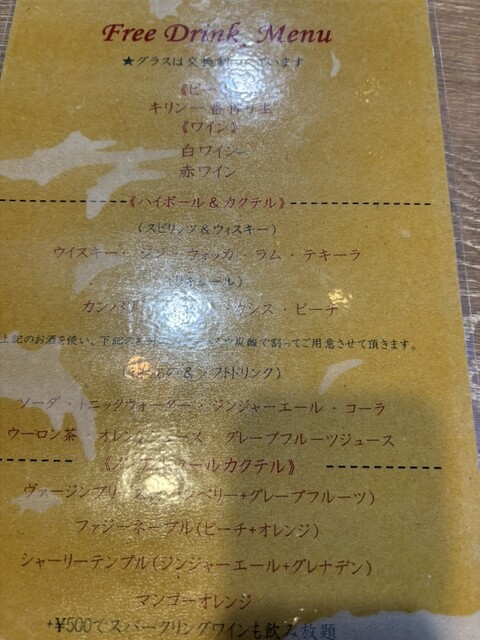 Free Drink Menu
★グラスは交換制
います
キリン一番搾り生
《ワイン》
白ワイン
赤ワイン
《ハイボール&カクテル》
(スピリッツ&ウィスキー)
ウイスキー・ジン・ウォッカ・ラム・テキーラ
カシス・ピーチ
上記のお酒を使い、下記の
炭酸で割ってご用意させて頂きます。
ソフトドリンク)
ソーダ・トニックウォーター・ジンジャーエール・コーラ
ウーロン茶・オレンジジュース グレープフルーツジュース
《ノンアルコールカクテル》
ヴァージンブリーズ
ベリー+グレープフルーツ)
ファジーネーブル(ピーチ+オレンジ)
シャーリーテンプル(ジンジャーエール+グレナデン)
マンゴーオレンジ
+¥500でスパークリングワインも飲み放題